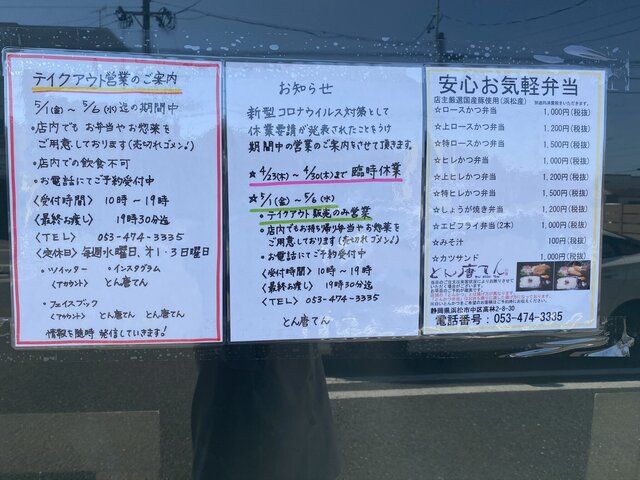 テイクアウト営業のご案内
5/1(金)~5/6(水)迄の期間中
・店内でもお弁当やお惣菜を
ご用意しております(売切れゴメン!)
・店内での飲食不可
・お電話にてご予約受付中
<受付時間> 10時~19時
<最終お渡し> 19時30分迄
<TEL> 053-474-3335
<定休日>毎週水曜日、オ1・3日曜日
・ツイッター ・インスタグラム
<アカウント> とん唐てん
・フェイスブック
<アカウント> とん唐てん とん唐てん
情報を随時発信していきます!
お知らせ
新型コロナウイルス対策として
休業要請が発表されたことをうけ
期間中の営業のご案内をさせて頂きます。
☆4/23(木)~4/30(木)まで 臨時休業
☆5/1(金)~5/6(水)
・テイクアウト販売のみ営業
・店内でもお持ち帰り弁当やお惣菜を
ご用意しております(売切れゴメン!)
・お電話にてご予約受付中
<受付時間>10時~19時
<最終お渡し>19時30分迄
<TEL>053-474-3335
とん唐てん
安心お気軽弁当
店主厳選国産豚使用(浜松産)
☆ロースかつ弁当 1,000円(税抜)
☆上ロースかつ弁当 1,200円(税抜)
☆特ロースかつ弁当 1,500円(税抜)
☆ヒレかつ弁当 1,000円(税抜)
☆上ヒレかつ弁当 1,200円(税抜)
☆特ヒレかつ弁当 1,500円(税抜)
☆しょうが焼き弁当 1,200円(税抜)
☆エビフライ弁当(2本) 1,000円(税抜)
☆みそ汁 100円(税抜)
☆カツサンド 1,000円(税抜)
とん唐てん
静岡県浜松市中区高林2-8-30
電話番号:053-474-3335